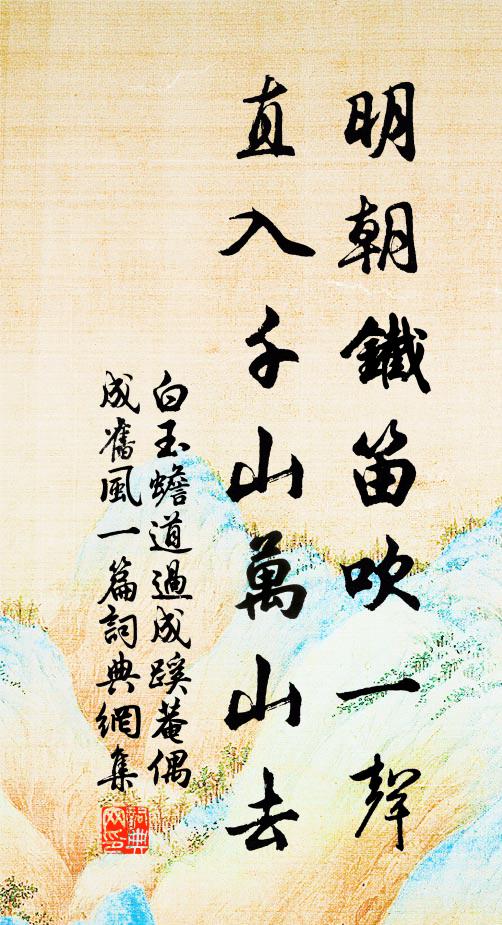 明朝鐵笛吹一聲
直入千山萬山去
白玉蟾道過成蹊菴偶
成舊風一篇詞典網集
詞典網印